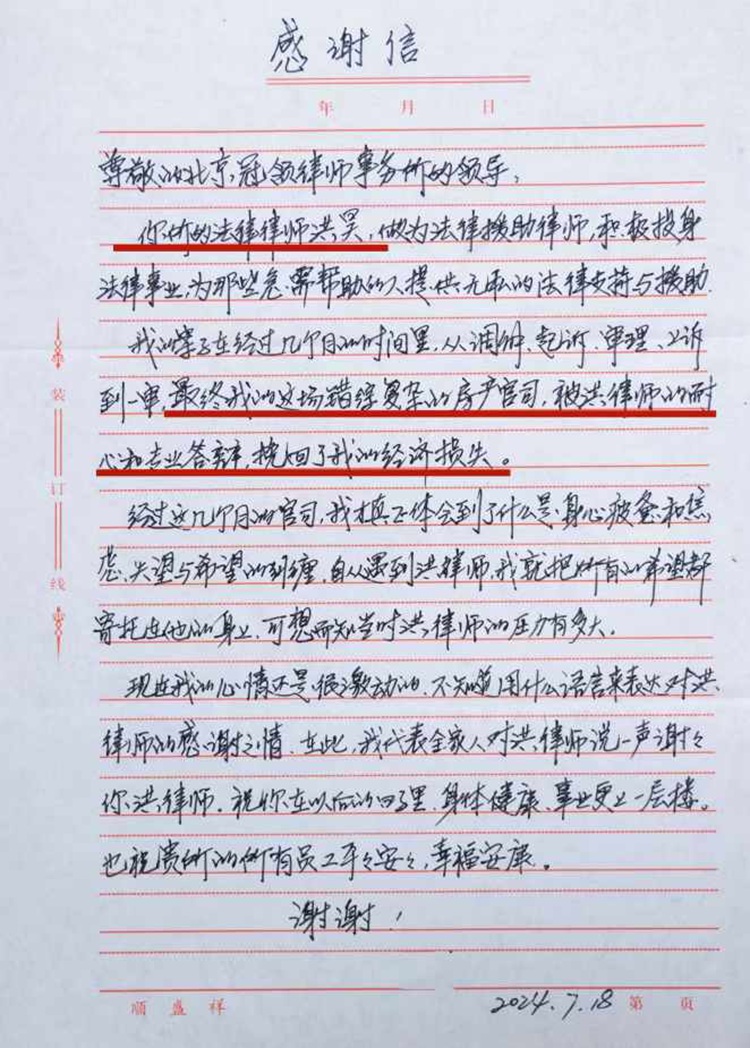 感谢信
年 月 日
尊敬的北京冠领律师事务所的领导：
你所的法律律师洪昊，做为法律援助律师，积极投身
法律事业，为那些急需帮助的人提供无私的法律支持与援助。
我的案子在经过几个月的时间里，从调解、起诉、审理、上诉
到一审，最终我的这场错综复杂的房产官司，被洪律师的耐
心和专业答辩，挽回了我的经济损失。
经过这几个月的官司，我才真正体会到了什么是身心疲惫和焦
虑，失望与希望的纠缠，自从遇到洪律师，我就把所有的希望都
寄托在他的身上，可想而知当时洪律师的压力有多大。
现在我的心情还是很激动的，不知道用什么语言来表达对洪
律师的感谢之情，在此，我代表全家人对洪律师说一声谢々
你洪律师，祝你在以后的日子里，身体健康、事业更上一层楼。
也祝贵所的所有员工平々安々，幸福安康。
谢谢！
装
订
线
顺盛祥
2024.7.18 第 页